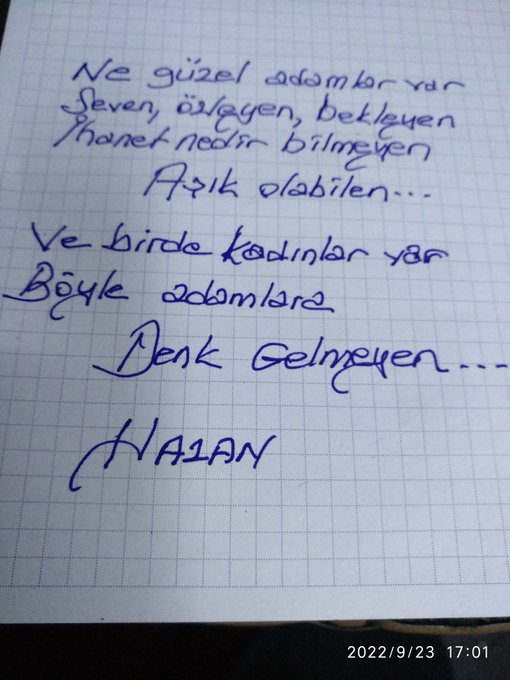 Ne güzel adamlar var
Seven, özleyen, bekleyen
İhanet nedir bilmeyen
Aşık olabilen...
Ve birde kadınlar var
Böyle adamlara
Denk Gelmeyen....
HAZAN
2022/9/23 17:01